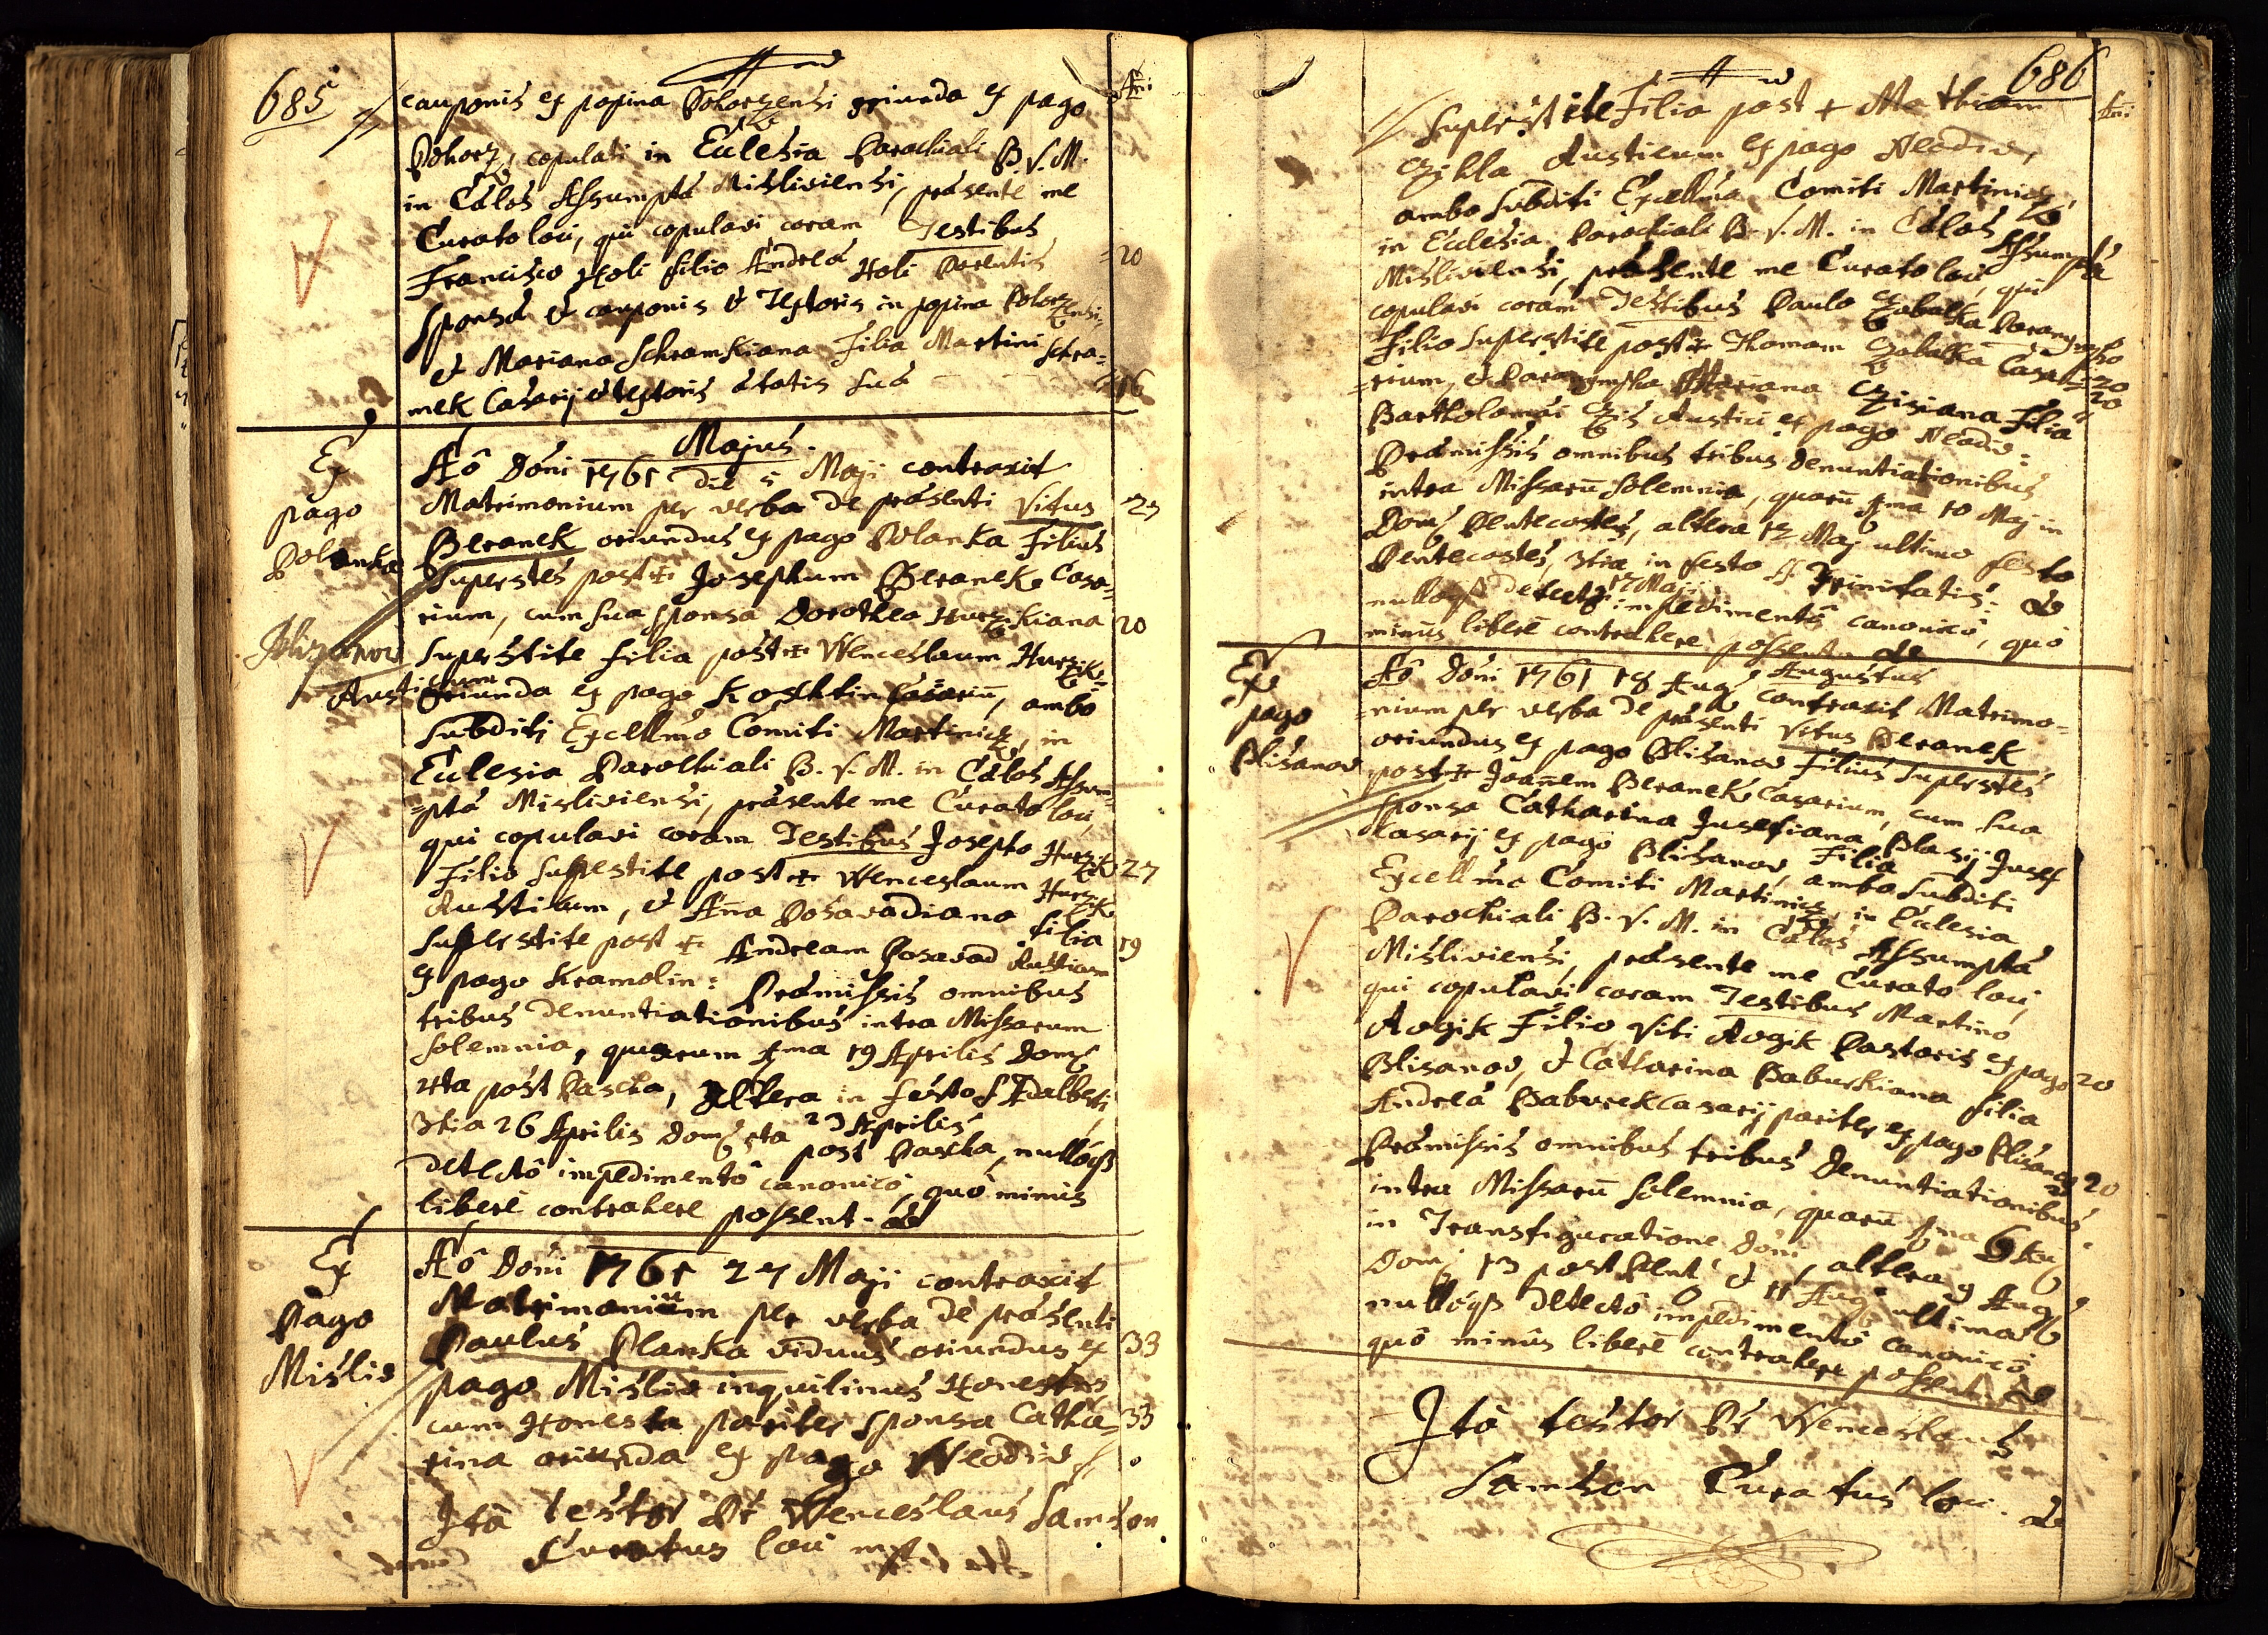 685
cauponis ex popina Pohorzensi oriunda ex pago
Pohorz, copulati in Ecclesia Parochiali B.V.M.
in Cælos Assumptæ Misliviensi, præsente me
Curato loci, qui copulavi coram Testibus
Francisco Holi filio Andreæ Holi Parentis 20
Sponsæ et cauponis et Textoris in popina Pohorzensi
et Mariana Schramkiana Filia Martini Schra=
mek Casarij et textoris ætatis suæ 16
Majus.
Ex pago Polanka
Aô Dôni 1761 die 5 Maji contraxit
Matrimonium per verba de præsenti Vitus
Beranek oriundus ex pago Polanka Filius
Superstes post + Josephum Beranek Casa=
rium, cum sua sponsa Dorothea Hurzikiana 20
Superstite filia post + Wenceslaum Hurzik
Austicum
oriunda ex pago Koschtin Casariũ, ambo
Subditi Excellmo Comiti Martinicz, in
Ecclesia Parochiali B.V.M. in Cælos Assum=
=ptæ Misliviensi, præsente me Curato loci,
qui copulavi coram Testibus Josepho Hurzik 27
Filio Superstite post + Wenceslaum Hurzik
Austicum, et Añna Posavadiana filia
Superstite post + Andream Posavad Austicum 19
ex pago Kramolin: Præmissis omnibus
tribus denuntiationibus intra Missarum
Solemnia, quarum 1ma 19 Aprilis Dom
4ta post Pascha, altera in festo S. Adalberti
23 Aprilis
3tia 26 Aprilis Dom 5ta post Pascha, nullóq
detectô impedimentô canonicô, quô minùs
liberè contrahere possent.
Ex Pago Mislio
Aô Dôni 1761 27 Maji contraxit
Matrimonium per verba de præsenti
Paulus Planka viduus oriundus ex 33
pago Mislio inquilinus Honestus,
cum Honesta pariter sponsa Catha= 33
rina oriunda ex pago Neodio
Ità testor Pr Wenceslaus Samson
Curatus loci
686
Superstite Filia post + Mathiam
Czikla Austicum ex pago Neodio,
ambo Subditi Excellmo Comiti Martinicz
in Ecclesia Parochiali B.V.M. in Cælos Assumptæ
Misliviensi, præsente me Curato loci, qui
copulavi coram Testibus Paulo Czabalka Paranympho
Filio Superstite post + Thomam Czabalka Casa= 20
=rium, et Paranympha Mariana Czisiana Filia 20
Bartholomæi Czis Austici ex pago Neodio:
Præmissis omnibus tribus denuntiationibus
intra Missarũ Solemnia, quarũ 1ma 10 Maj in
Dom Pentecostes, altera 12 Maj ultimo festo
Pentecostes, 3tia in festo SS. Trinitatis:
17 Maji
nullóq detectô impedimentô canonicô, quô
minùs liberè contrahere possent.
Augustus
Ex pago Blisanov
Aô Dôni 1761 18 Aug contraxit Matrimo=
=nium per verba de præsenti Vitus Beranek
oriundus ex pago Blisanov Filius Superstes
post + Joañem Beranek Casarium, cum sua
sponsa Catharina Jusefiana Filia Blasij Jusef
Casarij ex pago Blisanov, ambo Subditi
Excellmo Comiti Martinicz, in Ecclesia
Parochiali B.V.M. in Cælos Assumptæ
Misliviensi, præsente me Curato loci,
qui copulavi coram Testibus Martino
Rogik Filio Viti Rogik Pastoris ex pago 20
Blisanov, et Catharina Baburkiana filia
Andreæ Baburek Casarij pariter ex pago Blisanov 20
Præmissis omnibus tribus Denuntiationibus
intra Missarũ Solemnia, quarũ 1ma 6 Aug
in Transfiguratione Dôni, altera 9 Aug
Dom 13 post Pent et ultima
nullóq detectô impedimentô canonicô
quô minùs liberè contrahere possent
Ità testor Pr Wenceslaus
Samson Curatus loci.